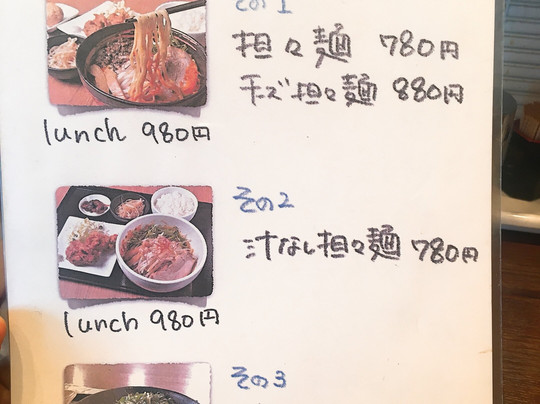 その1
担々麺 780円
チーズ担々麺 880円
lunch 980円
その2
汁なし担々麺 780円
lunch 980円
その3